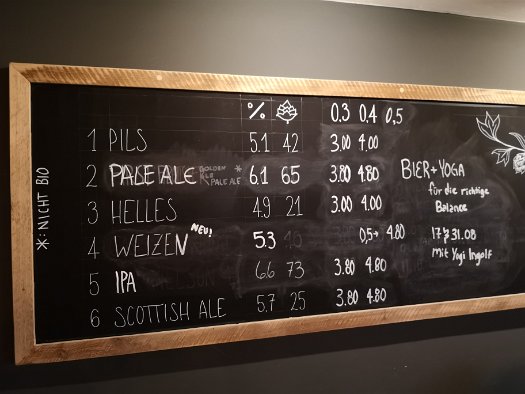 % 0.3 0.4 0,5
1 PILS 5.1 42 3.00 4.00
2 PALE ALE * 6.1 65 3.80 4.80
3 HELLES 4.9 21 3.00 4.00
4 WEIZEN NEU! 5.3 0,5→ 4.80
5 IPA 6.6 73 3.80 4.80
6 SCOTTISH ALE 5.7 25 3.80 4.80
*: NICHT BIO
BIER + YOGA
für die richtige
Balance
17 & 31.08
mit Yogi Ingolf